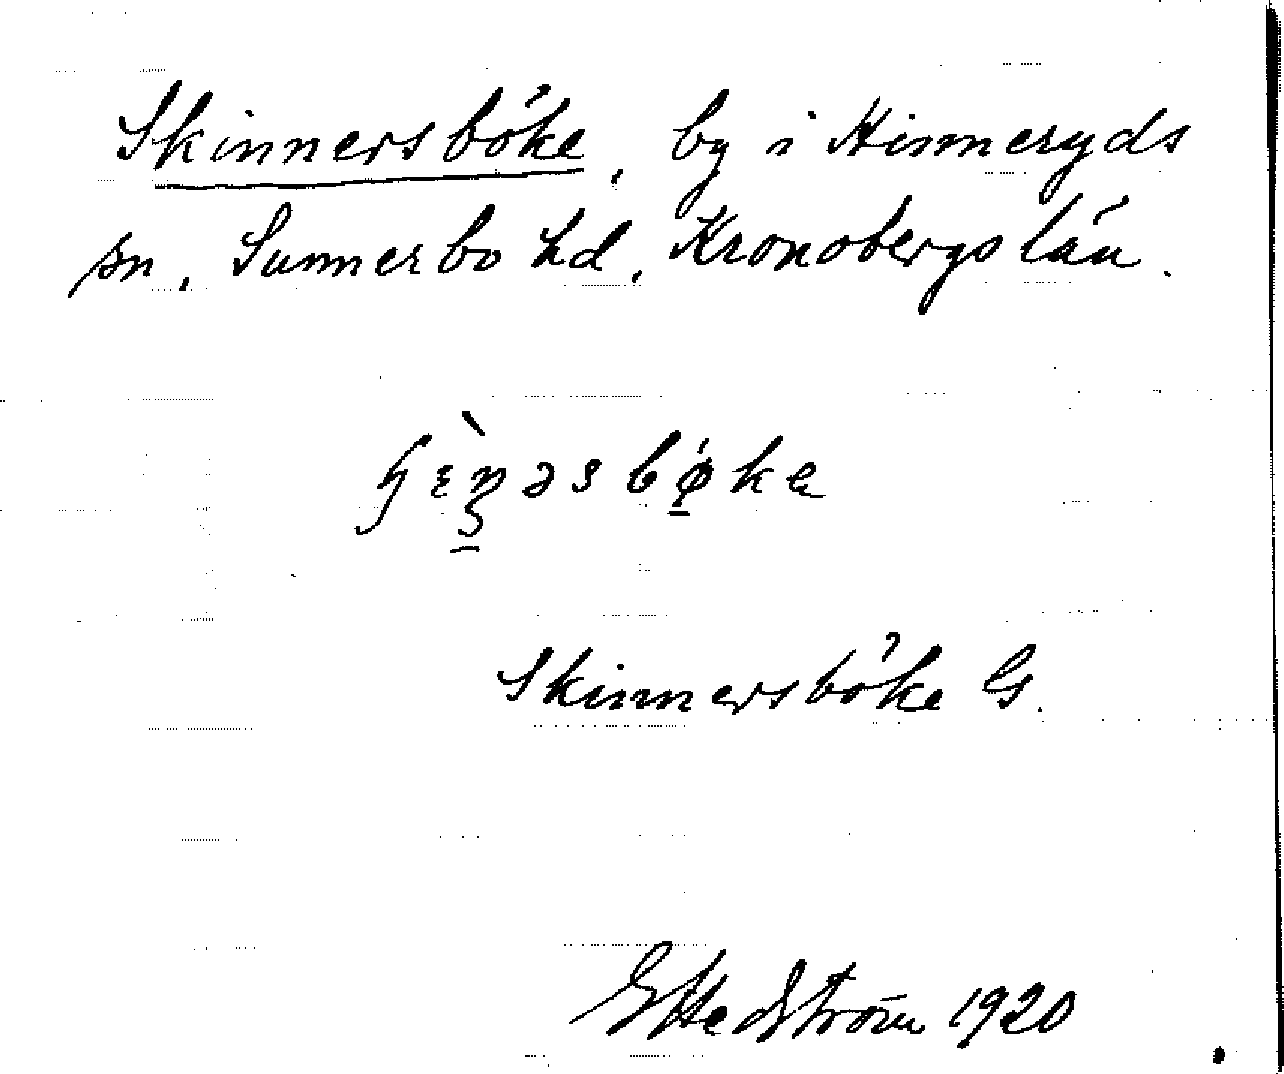 Skinnersböke, by i Hinneryds
sn, Sunnerbo hd, Kronobergs län.
Skinnersböke G.
G Hedström 1920